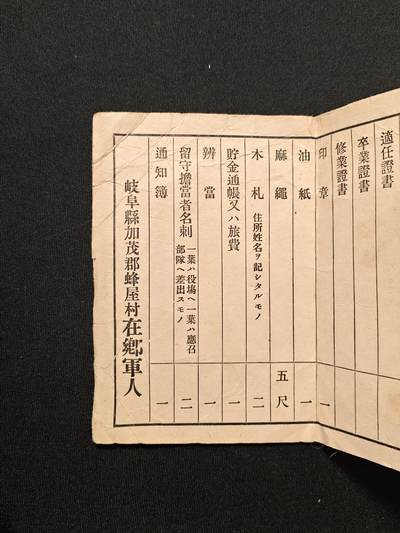 適任證書
卒業證書
修業證書
印章 一
油紙 一
麻繩 五尺
木札 住所姓名ヲ記シタルモノ 二
貯金通帳又ハ旅費 一
辨當 一
留守擔當者名刺 一葉ハ役場ヘ一葉ハ應召部隊ヘ差出スモノ 二
通知簿 一
岐阜縣加茂郡蜂屋村在鄕軍人